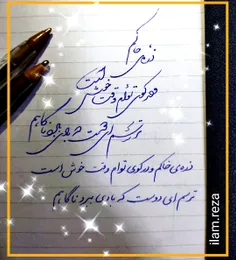 ذره‌ی خاکم
و در کوی توام وقت خوش است
ترسم ای دوست که بادی ببرد ناگاهم
ذره‌ی خاکم و در کوی توام وقت خوش است
ترسم ای دوست که بادی ببرد ناگاهم
ilam.reza